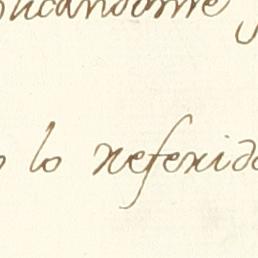 ucandome
lo referido